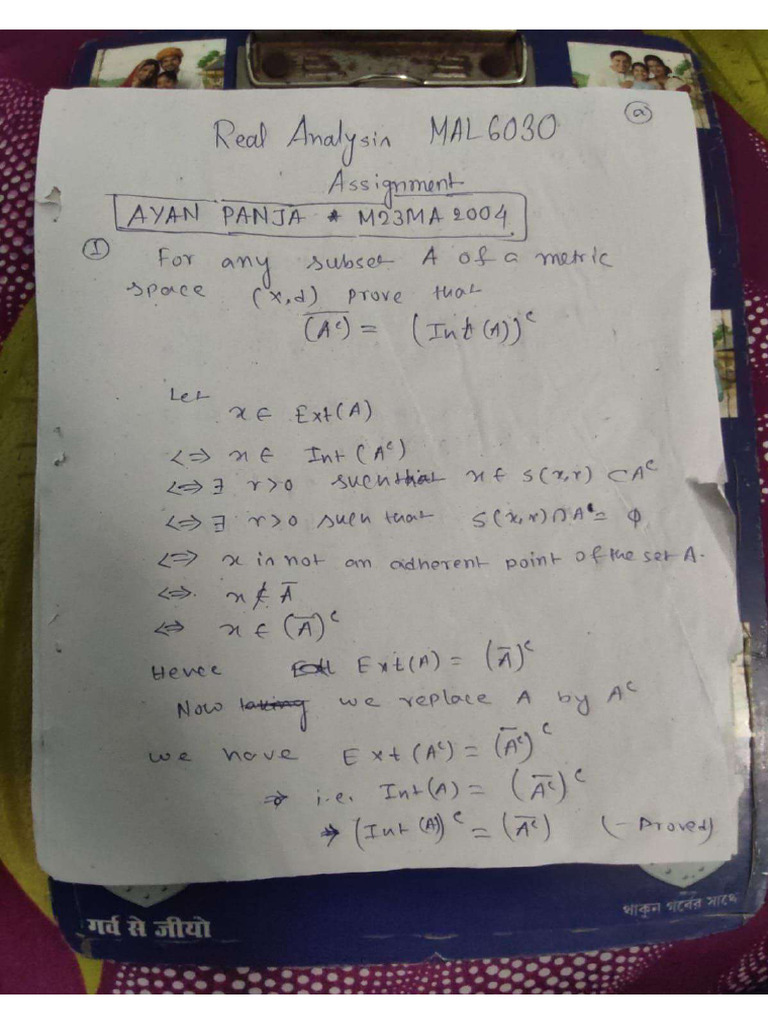 ⓐ
Real Analysin MAL6030
Assignment
AYAN PANJA * M23MA2004.
① For any subset A of a metric
space (x,d) prove that
\overline{(A^c)} = (Int(A))^c
Let
x ∈ Ext(A)
<=> x ∈ Int(A^c)
<=> ∃ r>0 such that x ∈ S(x,r) ⊂ A^c
<=> ∃ r>0 such that S(x,r) ∩ A = φ
<=> x in not an adherent point of the set A.
<=> x ∉ \overline{A}
<=> x ∈ (\overline{A})^c
Hence Ext(A) = (\overline{A})^c
Now taking we replace A by A^c
we have Ext(A^c) = (\overline{A^c})^c
⇒ i.e. Int(A) = (\overline{A^c})^c
⇒ (Int(A))^c = (\overline{A^c}) (-Proved)
गर्व से जीयो
থাকুন গর্বের সাথে